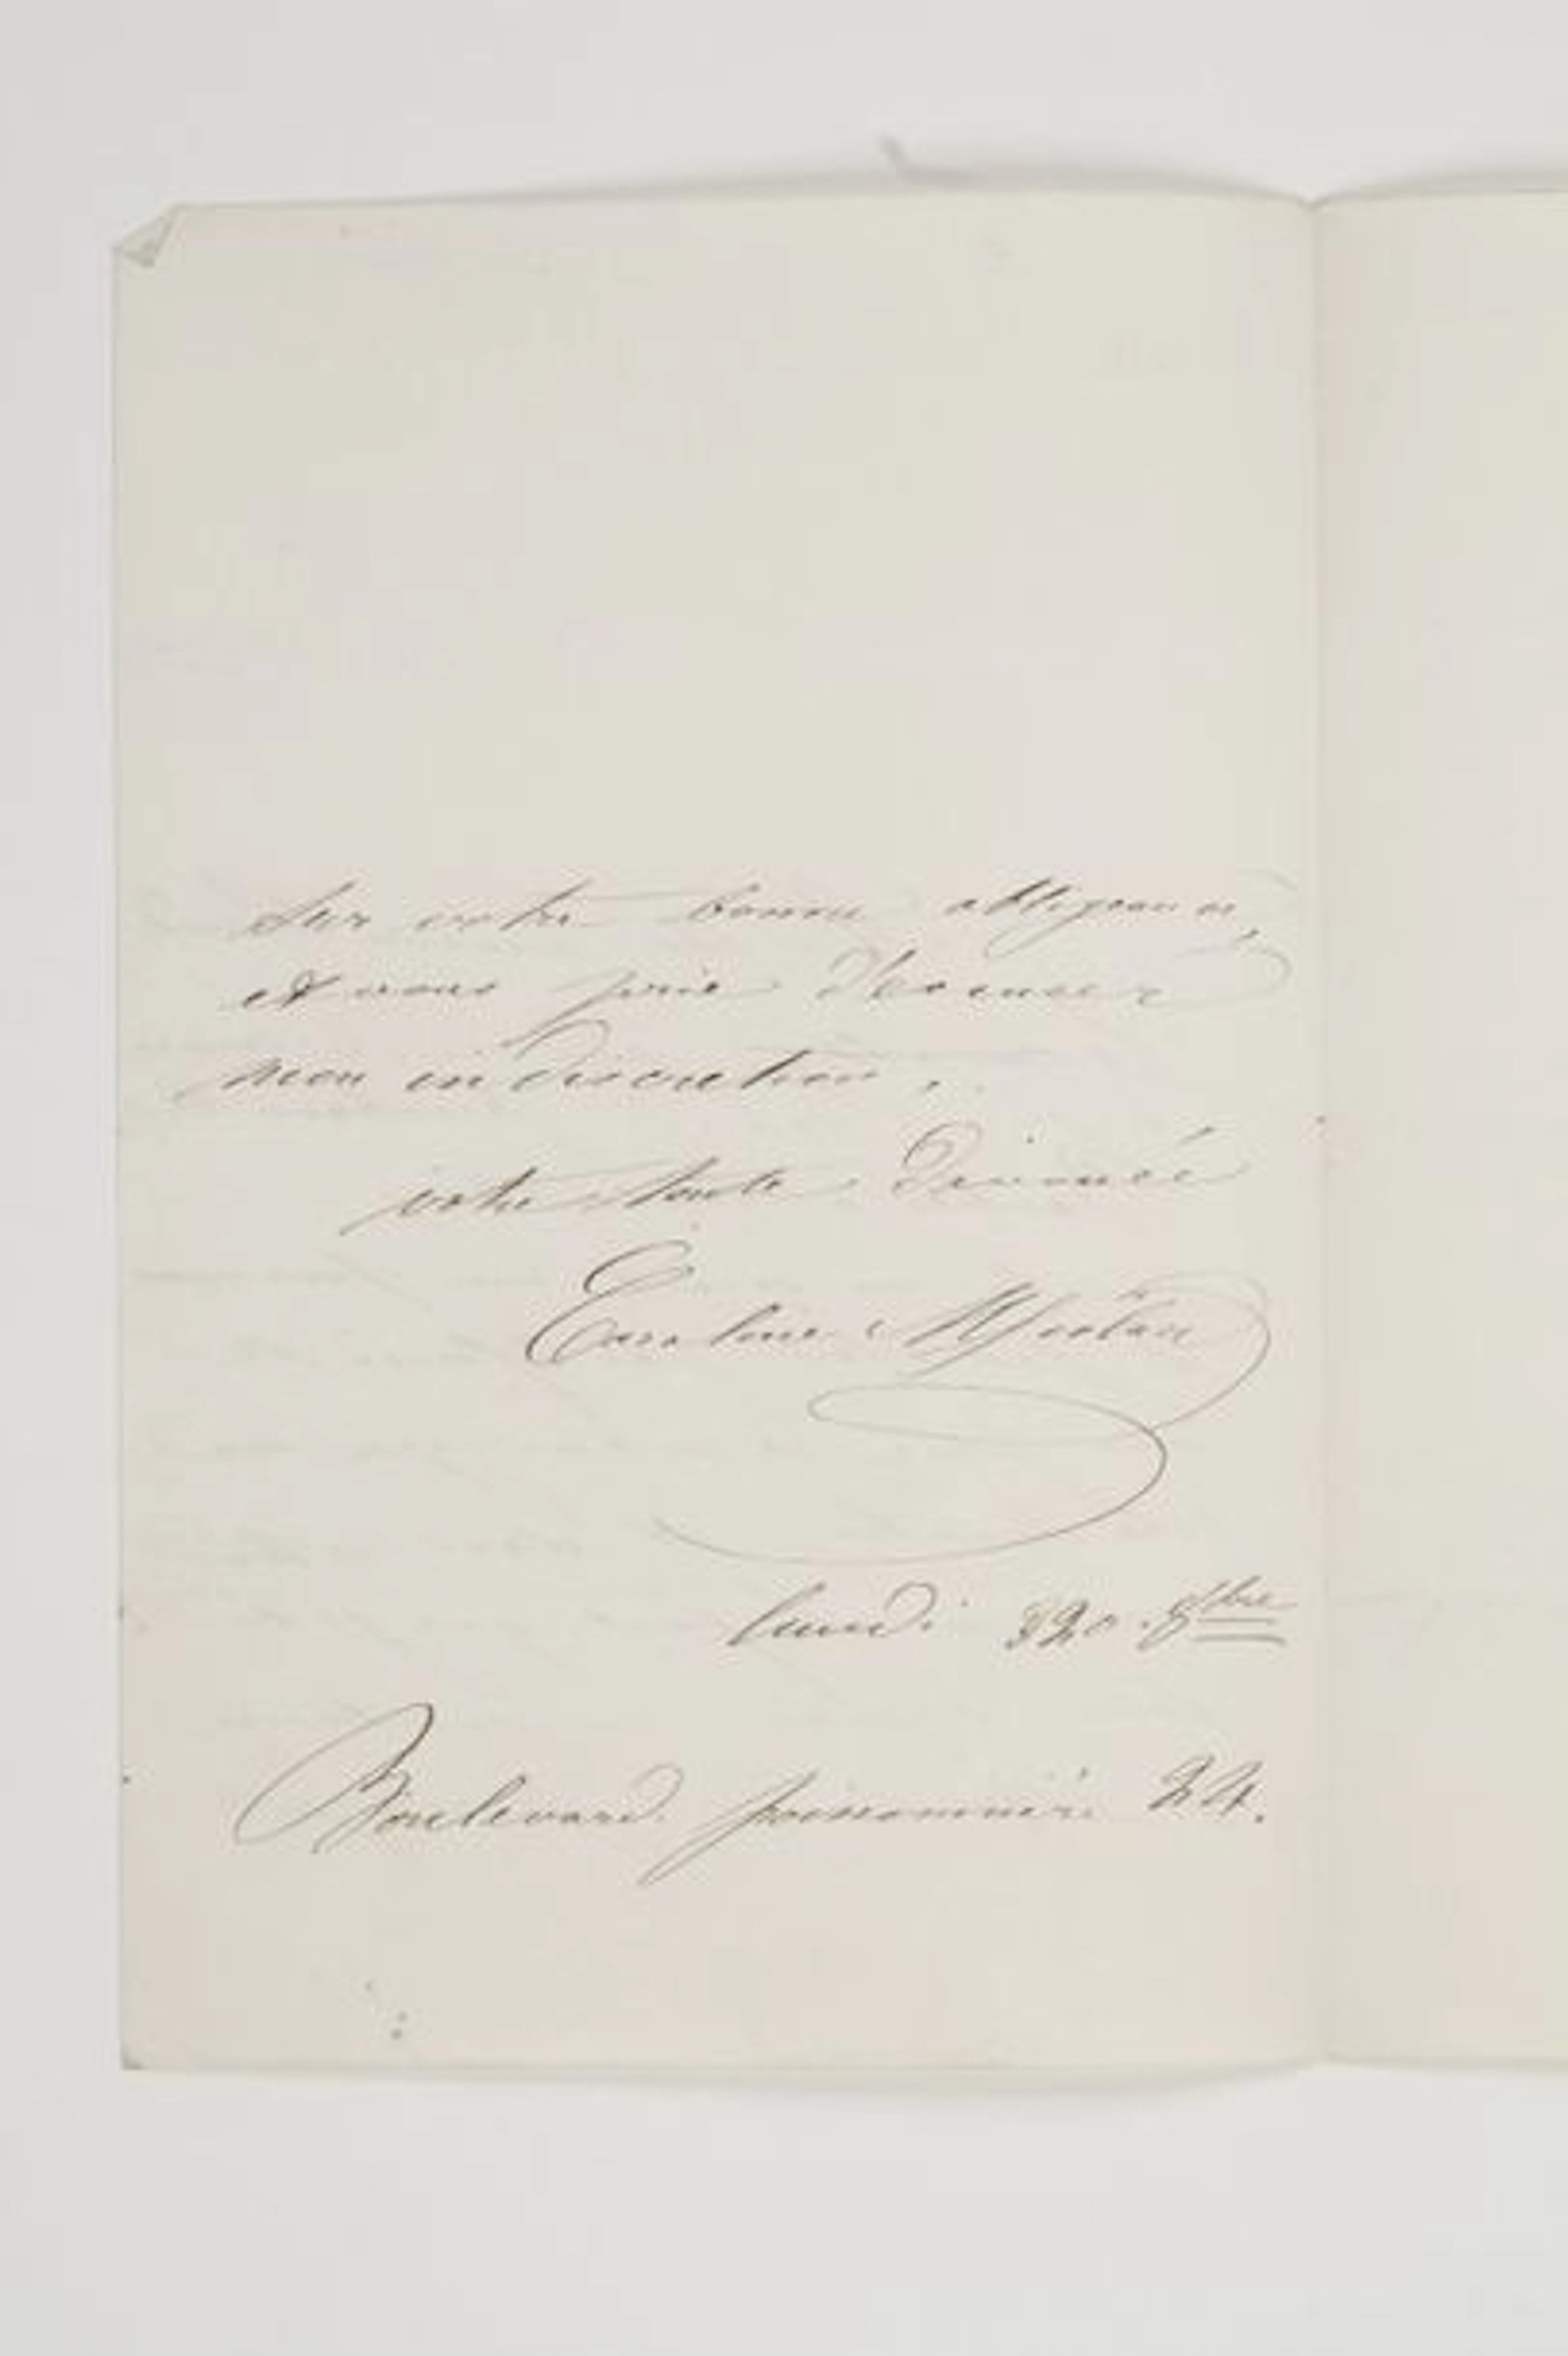 Sur votre bonne obligeance,
et vous prie d'excuser
mon indiscretion,.
votre toute devouée
Caroline
lundi 20. 8bre
Boulevard poissonnière 24.